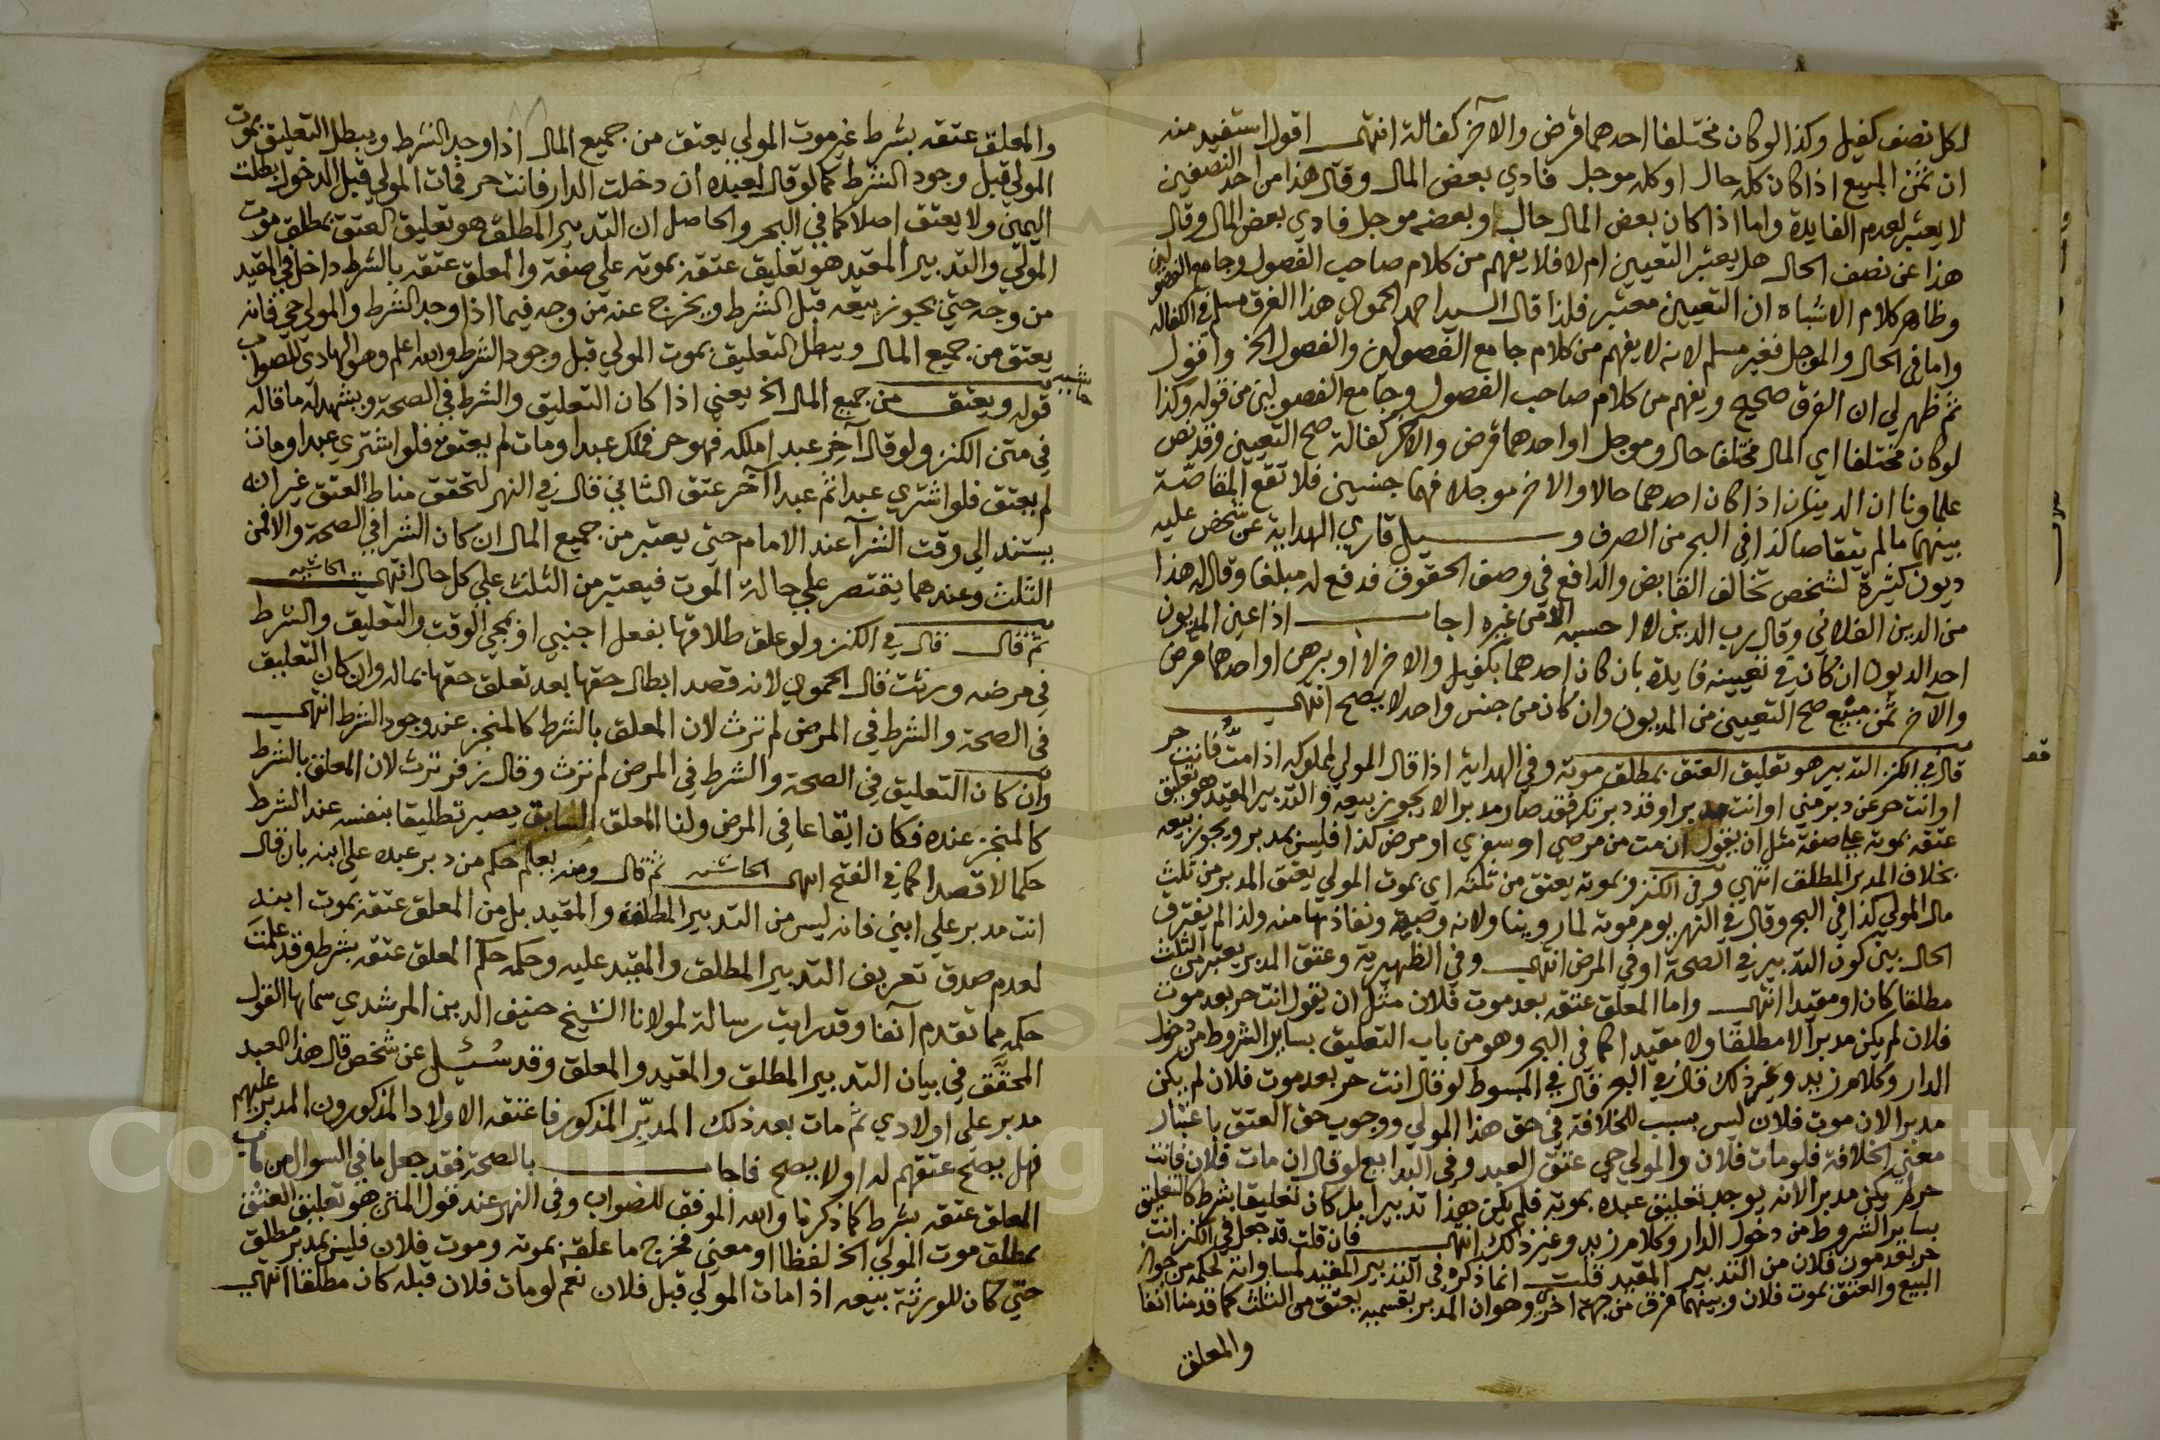 لكل نصف كفيل وكذا لو كان مختلفا احدهما قرض والآخر كفالة انتهى اقول استفيد منه
ان ثمن المبيع اذا كان كله حال او كله موجل فادي بعض المال وقال هذا من احد النصفين
لا يعتبر لعدم الفايدة واما اذا كان بعض المال حال وبعضه موجل فادي بعض المال وقال
هذا عن نصف الحال هل يعتبر التعيين ام لا فلا يفهم من كلام صاحب الفصول وجامع الفصولين
وظاهر كلام الاشباه ان التعيين معتبر فلذا قال السيد احمد الحموي هذا الفرق مسلم في الكفالة
واما في الحال والموجل فغير مسلم لانه لا يفهم من كلام جامع الفصولين والفصول الخ واقول
ثم ظهر لي ان الفرق صحيح ويفهم من كلام صاحب الفصول وجامع الفصولين من قوله وكذا
لو كان مختلفا اي المال مختلفا حال وموجل او احدهما قرض والاخر كفالة صح التعيين وقد نص
علماونا ان الدينان اذا كان احدهما حالا والاخر موجلا فهما جنسين فلا تقع المقاصة
بينهما ما لم يتقاصا كذا في البحر من الصرف وسيل قاري الهداية عن شخص عليه
ديون كثيرة لشخص تخالف القابض والدافع في وصف الحقوق فدفع له مبلغا وقال له هذا
من الدين الفلاني وقال رب الدين لا احسبه الا من غيره اجاب اذا عين المديون
احد الديون ان كان في تعيينه فايدة بان كان احدهما بكفيل والاخر لا او برهن او احدهما قرض
والآخر ثمن مبيع صح التعيين من المديون وان كان من جنس واحد لا يصح انتهى
قال في الكنز التدبير هو تعليق العتق بمطلق موته وفي الهداية اذا قال المولي لمملوكه اذا مت فانت حر
او انت حر عن دبر مني او انت مدبر او قد دبرتك فقد صار مدبرا لا يجوز بيعه والتدبير المقيد هو تعليق
عتقه بموته علي صفة مثل ان يقول ان مت من مرضي او سفري او مرض كذا فليس بمدبر ويجوز بيعه
بخلاف المدبر المطلق انتهي وفي الكنز وبموته يعتق من ثلثه اي بموت المولي يعتق المدبر من ثلث
مال المولي كذا في البحر وقال في النهر يوم موته لما روينا ولانه وصية ونفاذها منه ولذا لم يفترق
الحال بين كون التدبير في الصحة او في المرض انتهى وفي الظهيرية وعتق المدبر يعتبر من الثلث
مطلقا كان او مقيدا انتهى واما المعلق عتقه بعد موت فلان مثل ان يقول انت حر بعد موت
فلان لم يكن مدبرا لا مطلقا ولا مقيدا كما في البحر وهو من باب التعليق بساير الشروط من دخول
الدار وكلام زيد وغير ذلك قال في البحر قال في المبسوط لو قال انت حر بعد موت فلان لم يكن
مدبرا لان موت فلان ليس بسبب للخلافة في حق هذا المولي ووجوب حق العتق باعتبار
معني الخلافة فلو مات فلان والمولي حي عتق العبد وفي البدايع لو قال ان مات فلان فانت
حر لم يكن مدبرا لانه لم يوجد تعليق عبده بموته فلم يكن هذا تدبيرا بل كان تعليقا بشرط كالتعليق
بساير الشروط من دخول الدار وكلام زيد وغير ذلك انتهى فان قلت قد جعل في الكنز انت
حر بعد موت فلان من التدبير المقيد قلت انما ذكره في التدبير المقيد لمساواته لحكمه من جواز
البيع والعتق بموت فلان وبينهما فرق من جهة اخري وهو ان المدبر بقسميه يعتق من الثلث كما قدمنا انفا
والمعلق
والمعلق عتقه بشرط غير موت المولي يعتق من جميع المال اذا وجد الشرط ويبطل التعليق بموت
المولي قبل وجود الشرط كما لو قال لعبده ان دخلت الدار فانت حر فمات المولي قبل الدخول بطلت
اليمين ولا يعتق اصلا كما في البحر والحاصل ان التدبير المطلق هو تعليق العتق بمطلق موت
المولي والتدبير المقيد هو تعليق عتقه بموته علي صفة والمعلق عتقه بالشرط داخل في المقيد
من وجه حتي يجوز بيعه قبل الشرط ويخرج عنه من وجه فيما اذا وجد الشرط والمولي حي فانه
يعتق من جميع المال ويبطل التعليق بموت المولي قبل وجود الشرط والله اعلم وهو الهادي للصواب
حاشية
قوله ويعتق من جميع المال الخ يعني اذا كان التعليق والشرط في الصحة ويشهد له ما قاله
في متن الكنز ولو قال آخر عبد املكه فهو حر فملك عبدا ومات لم يعتق فلو اشتري عبدا ومات
لم يعتق فلو اشتري عبدا ثم عبدا آخر عتق الثاني قال في النهر لتحقق مناط العتق غير انه
يستند الي وقت الشرآ عند الامام حتي يعتبر من جميع المال ان كان الشرا في الصحة والا فمن
الثلث وعندهما يقتصر علي حالة الموت فيعتبر من الثلث علي كل حال انتهى الحاشيه
ثم قال قال في الكنز ولو علق طلاقها بفعل اجنبي او بمجي الوقت والتعليق والشرط
في مرضه ورثت قال الحموي لانه قصد ابطال حقها بعد تعلق حقها بماله وان كان التعليق
في الصحة والشرط في المرض لم ترث لان المعلق بالشرط كالمنجز عند وجود الشرط انتهى
وان كان التعليق في الصحة والشرط في المرض لم ترث وقال زفر ترث لان المعلق بالشرط
كالمنجز عنده فكان ايقاعا في المرض ولنا المعلق السابق يصير تطليقا بنفسه عند الشرط
حكما لا قصدا كما في الفتح انتهى الحاشيه ثم قال ومنه يعلم حكم من دبر عبده علي ابنه بان قال
انت مدبر علي ابني فانه ليس من التدبير المطلق والمقيد بل من المعلق عتقه بموت ابنه
لعدم صدق تعريف التدبير المطلق والمقيد عليه وحكمه حكم المعلق عتقه بشرط وقد علمت
حكمه مما تقدم آنفا وقد رايت رسالة لمولانا الشيخ حنيف الدين المرشدي سماها القول
المحقق في بيان التدبير المطلق والمقيد والمعلق وقد سئيل عن شخص قال هذا العبد
مدبر علي اولادي ثم مات بعد ذلك المدبر المذكور فاعتقه الاولاد المذكورون المدبر عليهم
فهل يصح عتقهم له او لا يصح فاجاب بالصحة فقد جعل ما في السوال من باب
المعلق عتقه بشرط كما ذكرنا والله الموفق للصواب وفي النهر عند قول المتن هو تعليق العتق
بمطلق موت المولي الخ لفظا او معني فخرج ما علقه بموته وموت فلان فليس بمدبر مطلق
حتي كان للورثة بيعه اذا مات المولي قبل فلان نعم لو مات فلان قبله كان مطلقا انتهى